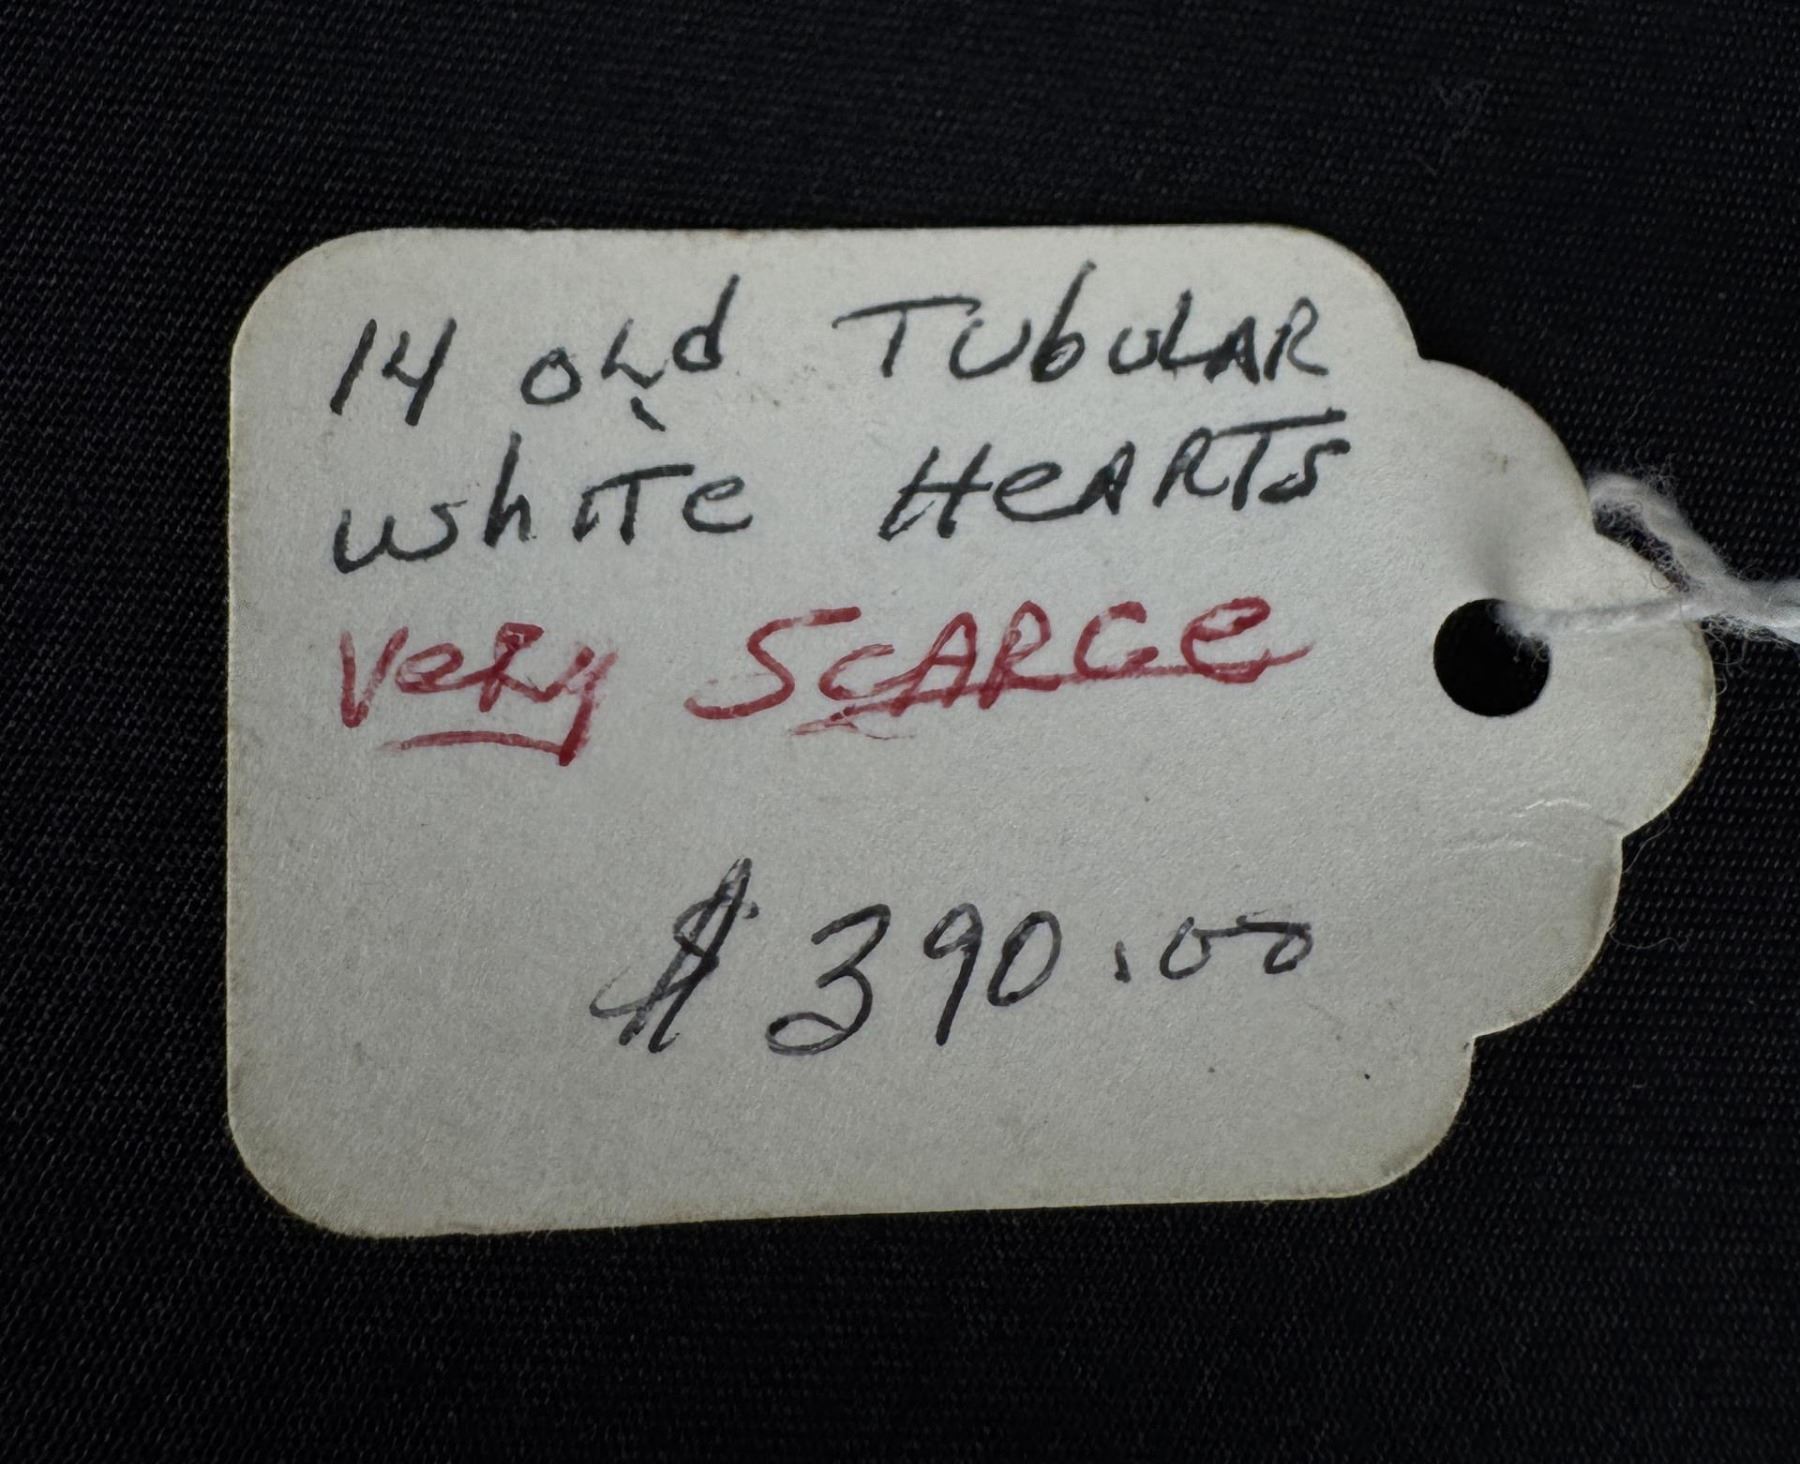 14 old Tubular
white Hearts
Very Scarce
$390.00